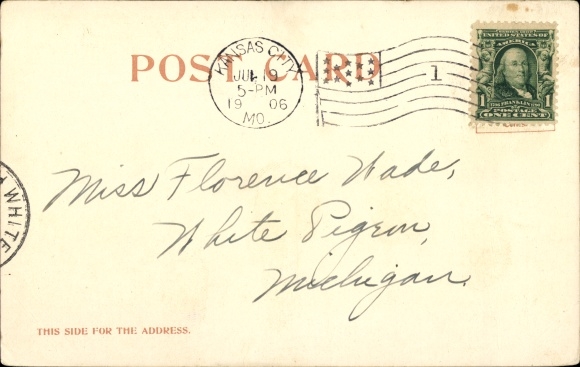 POST CARD
KANSAS CITY
JUL 9
5-PM
1906
MO.
1
UNITED STATES OF
AMERICA
1 FRANKLIN 1
POSTAGE
ONE CENT
Miss Florence Wade,
White Pigeon,
Michigan.
WHITE
THIS SIDE FOR THE ADDRESS.